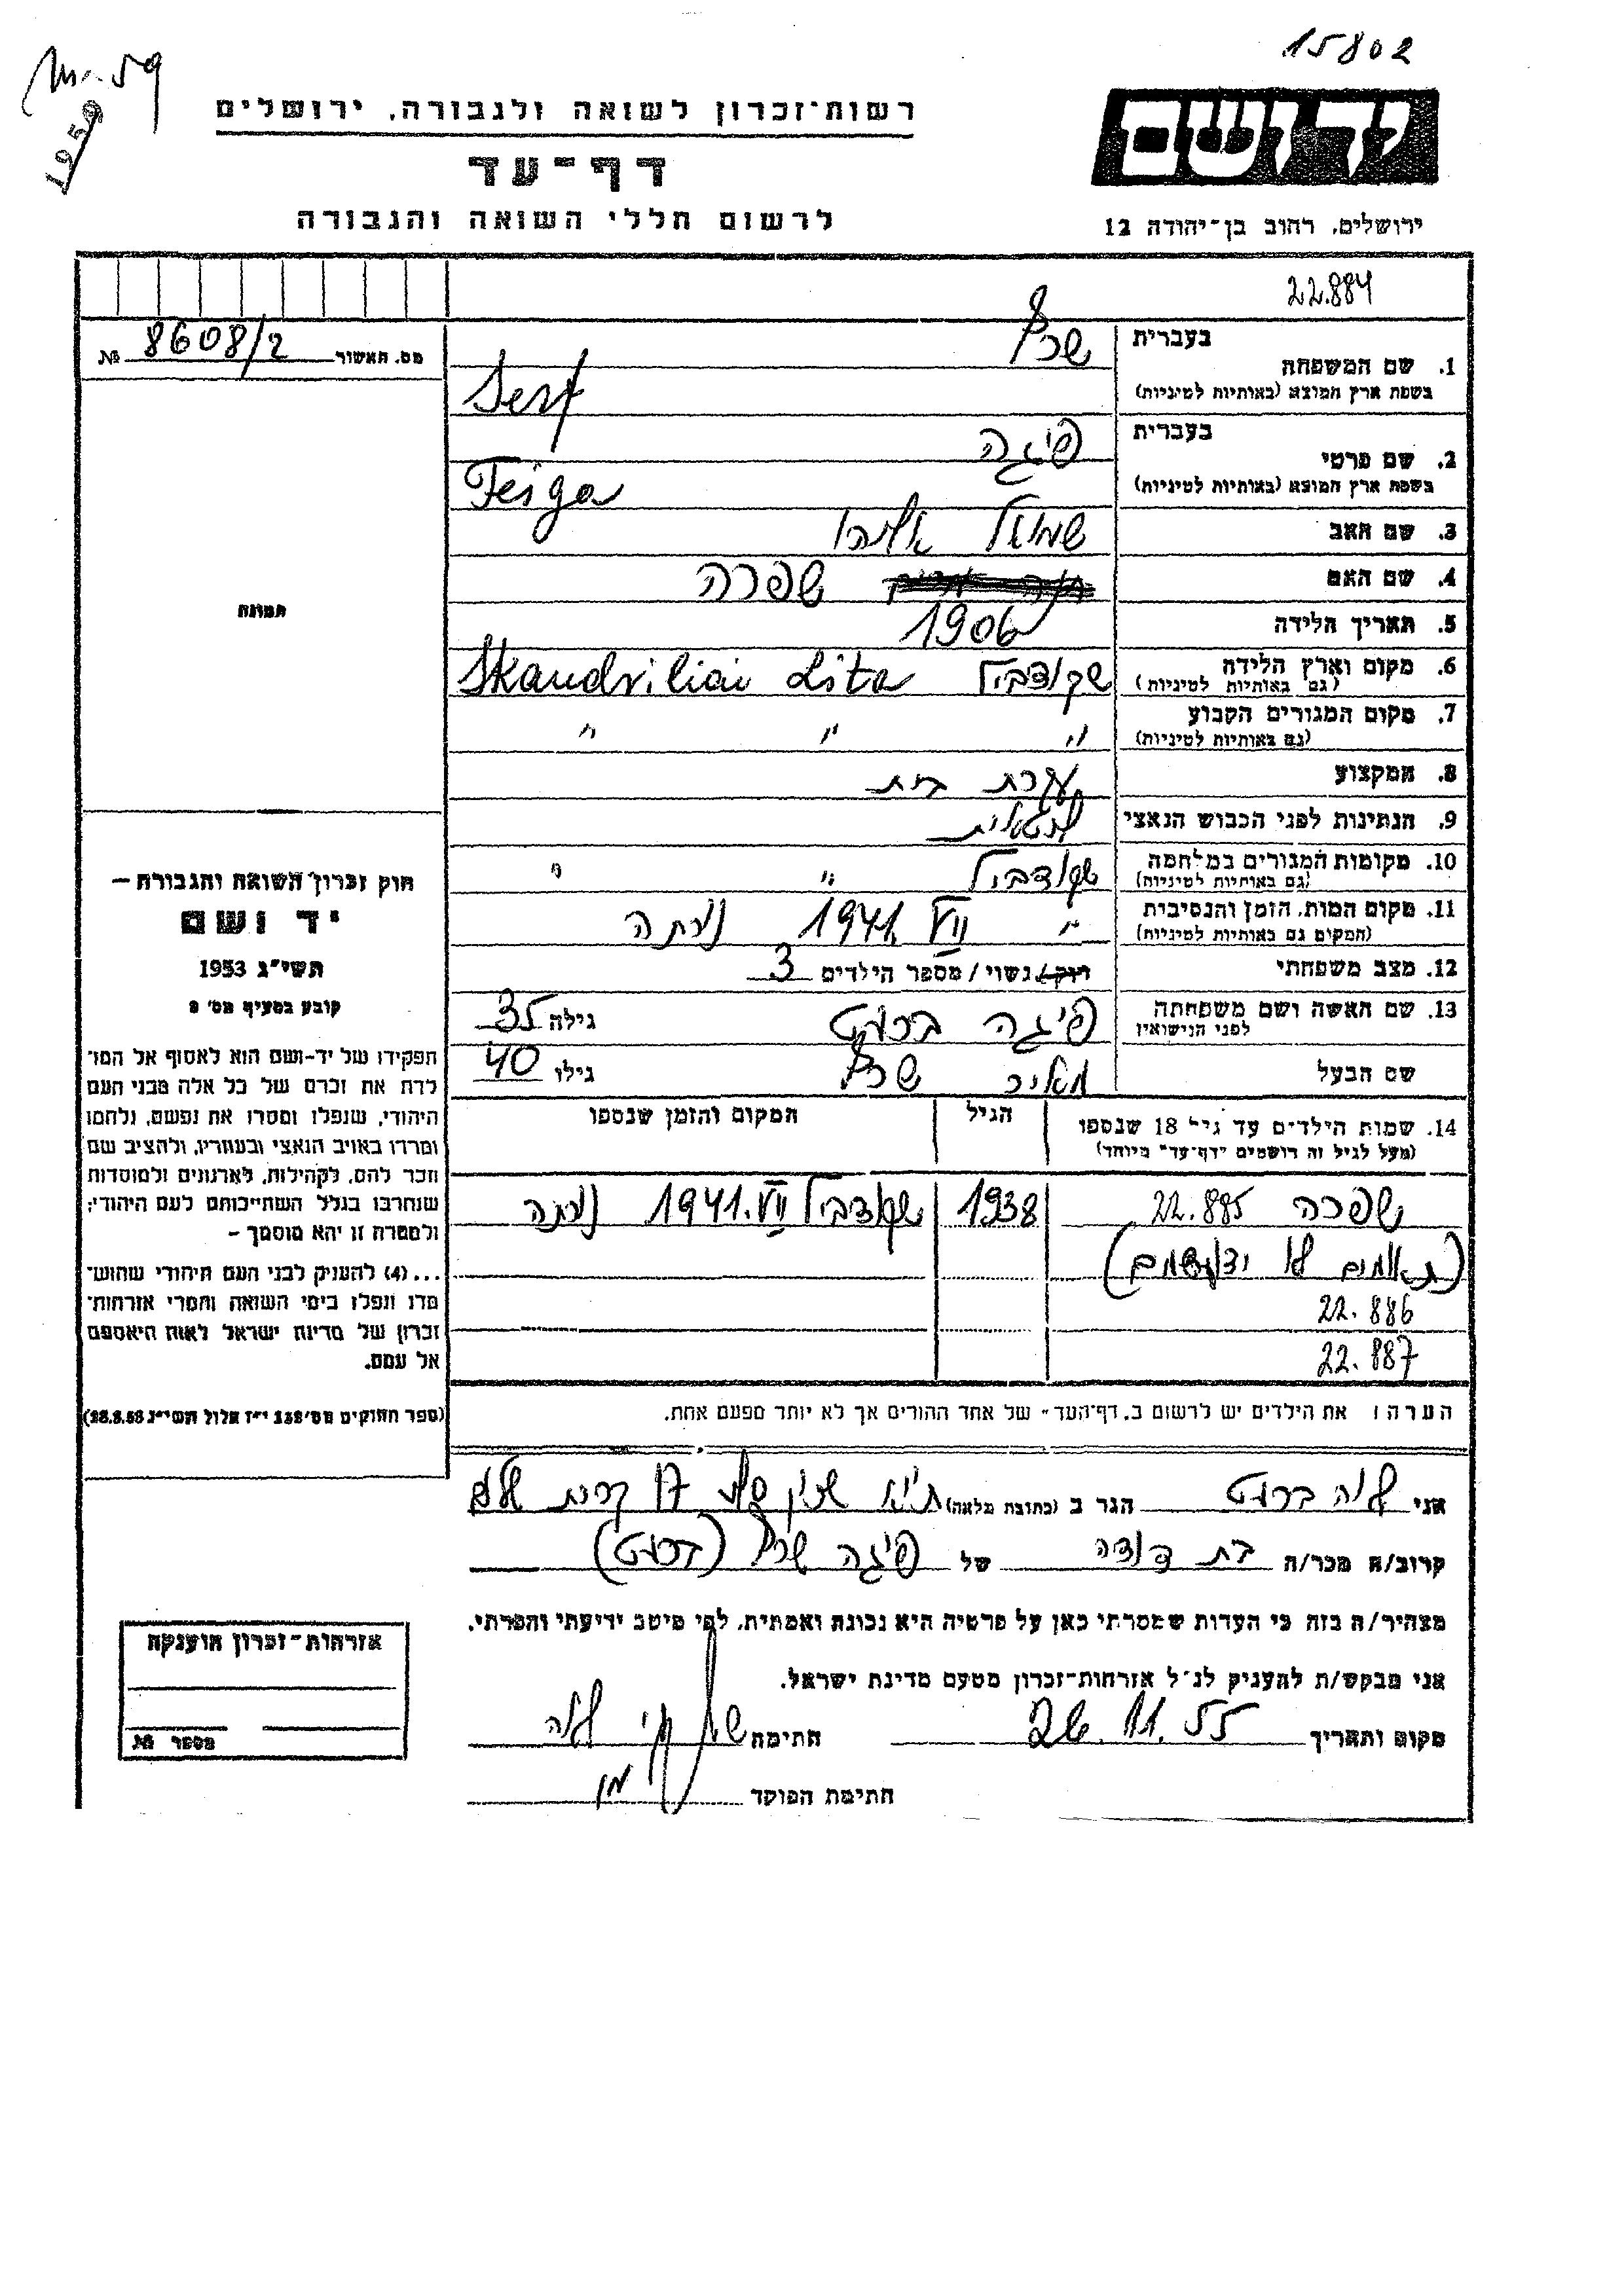 15802
1959
רשות־זכרון לשואה ולגבורה, ירושלים
דף־עד
לרשום חללי השואה והגבורה
יד ושם
ירושלים, רחוב בן־יהודה 12
22.884
מס. האשור 8608/2 №
בעברית
1. שם המשפחה שרף
בשפת ארץ המוצא (באותיות לטיניות) Serf
בעברית
2. שם פרטי פיגה
בשפת ארץ המוצא (באותיות לטיניות) Feiga
3. שם האב שמואל אליהו
4. שם האם שפרה
5. תאריך הלידה 1906
6. מקום וארץ הלידה שקודביל Skaudviliai Lita
(גם באותיות לטיניות)
7. מקום המגורים הקבוע " " "
(גם באותיות לטיניות)
8. המקצוע עקרת בית
9. הנתינות לפני הכבוש הנאצי ליטאית
10. מקומות המגורים במלחמה שקודביל " "
(גם באותיות לטיניות)
11. מקום המות, הזמן והנסיבות " VII 1941 נורתה
(המקום גם באותיות לטיניות)
12. מצב משפחתי רווק / נשוי / מספר הילדים 3
13. שם האשה ושם משפחתה פיגה ברוט גילה 35
לפני הנישואין
שם הבעל מאיר שרף גילו 40
14. שמות הילדים עד גיל 18 שנספו הגיל המקום והזמן שנספו
(מעל לגיל זה רושמים "דף־עד" מיוחד)
שפרה 22.885 1938 שקודביל VII.1941 נורתה
(תאומים לא ידוע שמם)
22.886
22.887
הערה: את הילדים יש לרשום ב"דף־העד" של אחד ההורים אך לא יותר מפעם אחת.
תמונה
חוק זכרון השואה והגבורה –
יד ושם
תשי"ג 1953
קובע בסעיף מס' 2
תפקידו של יד־ושם הוא לאסוף אל המו־
לדת את זכרם של כל אלה מבני העם
היהודי, שנפלו ומסרו את נפשם, נלחמו
ומרדו באויב הנאצי ובעוזריו, ולהציב שם
וזכר להם, לקהילות, לארגונים ולמוסדות
שנחרבו בגלל השתייכותם לעם היהודי;
ולמטרה זו יהא מוסמך –
...(4) להעניק לבני העם היהודי שהוש־
מדו ונפלו בימי השואה והמרי אזרחות־
זכרון של מדינת ישראל לאות היאספם
אל עמם.
(ספר החוקים מס' 132 י"ז אלול תשי"ג 28.8.53)
אני לאה ברוט הגר ב (כתובת מלאה) 17
קרוב/ה מכר/ה בת דודה של פיגה שרף (ברוט)
מצהיר/ה בזה כי העדות שמסרתי כאן על פרטיה היא נכונה ואמתית, לפי מיטב ידיעתי והכרתי.
אני מבקש/ת להעניק לנ"ל אזרחות־זכרון מטעם מדינת ישראל.
מקום ותאריך 26.11.55 חתימה לאה
חתימת הפוקד
אזרחות־זכרון הוענקה
מספר №